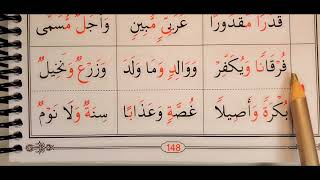 قَدَرًا مَقْدُورًا عَرَبِيٌّ مُّبِينٌ وَأَجَلٌ مُّسَمًّى
فُرْقَانًا وَيُكَفِّرْ وَوَالِدٍ وَمَا وَلَدَ وَزَرْعٌ وَنَخِيلٌ
بُكْرَةً وَأَصِيلًا غُصَّةٍ وَعَذَابًا سِنَةٌ وَلَا نَوْمٌ
148